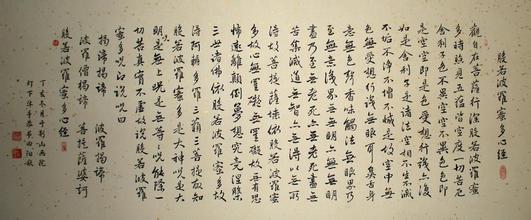 般若波羅蜜多心經
觀自在菩薩行深般若波羅蜜
多時照見五蘊皆空度一切苦厄
舍利子色不異空空不異色色即
是空空即是色受想行識亦復
如是舍利子是諸法空相不生不滅
不垢不淨不增不減是故空中無
色無受想行識無眼耳鼻舌身
意無色聲香味觸法無眼界乃
至無意識界無無明亦無無明
盡乃至無老死亦無老死盡無
苦集滅道無智亦無得以無所
得故菩提薩埵依般若波羅蜜
多故心無罣礙無罣礙故無有恐
怖遠離顛倒夢想究竟涅槃
三世諸佛依般若波羅蜜多故
得阿耨多羅三藐三菩提故知
般若波羅蜜多是大神咒是大
明咒是無上咒是無等等咒能除一
切苦真實不虛故說般若波羅
蜜多咒即說咒曰
揭諦揭諦 波羅揭諦
波羅僧揭諦 菩提薩婆訶
般若波羅蜜多心經
丁亥冬月